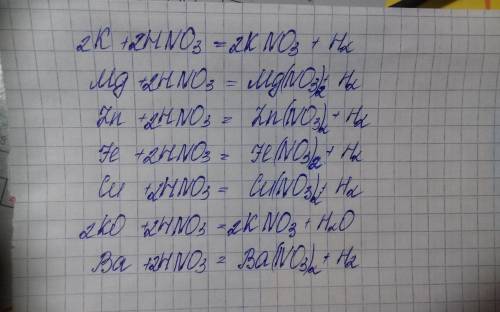 2K + 2HNO3 = 2KNO3 + H2
Mg + 2HNO3 = Mg(NO3)2 + H2
Zn + 2HNO3 = Zn(NO3)2 + H2
Fe + 2HNO3 = Fe(NO3)2 + H2
Cu + 2HNO3 = Cu(NO3)2 + H2
2KO + 2HNO3 = 2KNO3 + H2O
Ba + 2HNO3 = Ba(NO3)2 + H2